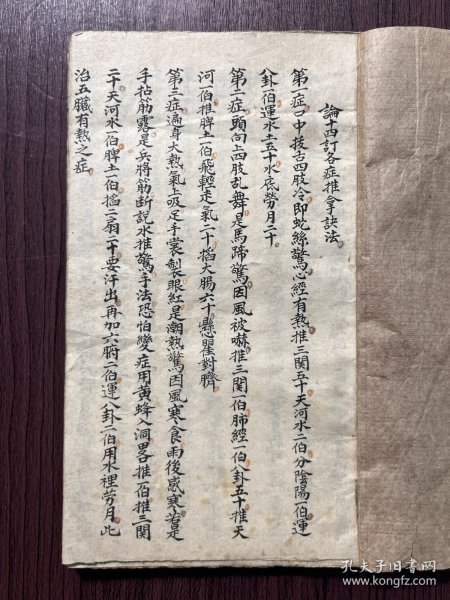 論十四訂各症推拿訣法
第一症口中拔舌四肢冷即蛇絲驚心經有熱推三関五十天河水二伯分陰陽一伯運
八卦一伯運水土五十水底勞月二十
第二症頭向上四肢乱舞是馬蹄驚因風被嚇推三関一伯肺經一伯八卦五十推天
河一伯推脾土一伯飛輕走氣二十掐大腸六十懸對臍
第三症滿身大熱氣上吸足手裳製眼紅是潮熱驚因風寒食雨後感寒若是
手拈筋露是兵將筋断説水推驚手法恐怕變症用黃蜂入洞畧推一伯推三関
二十天河水一伯脾土一伯掐二扇二十要汗出再加六腑二伯運八卦二伯用水裡劳月此
治五臟有熱之症
孔夫子旧书网
www.kongfz.com